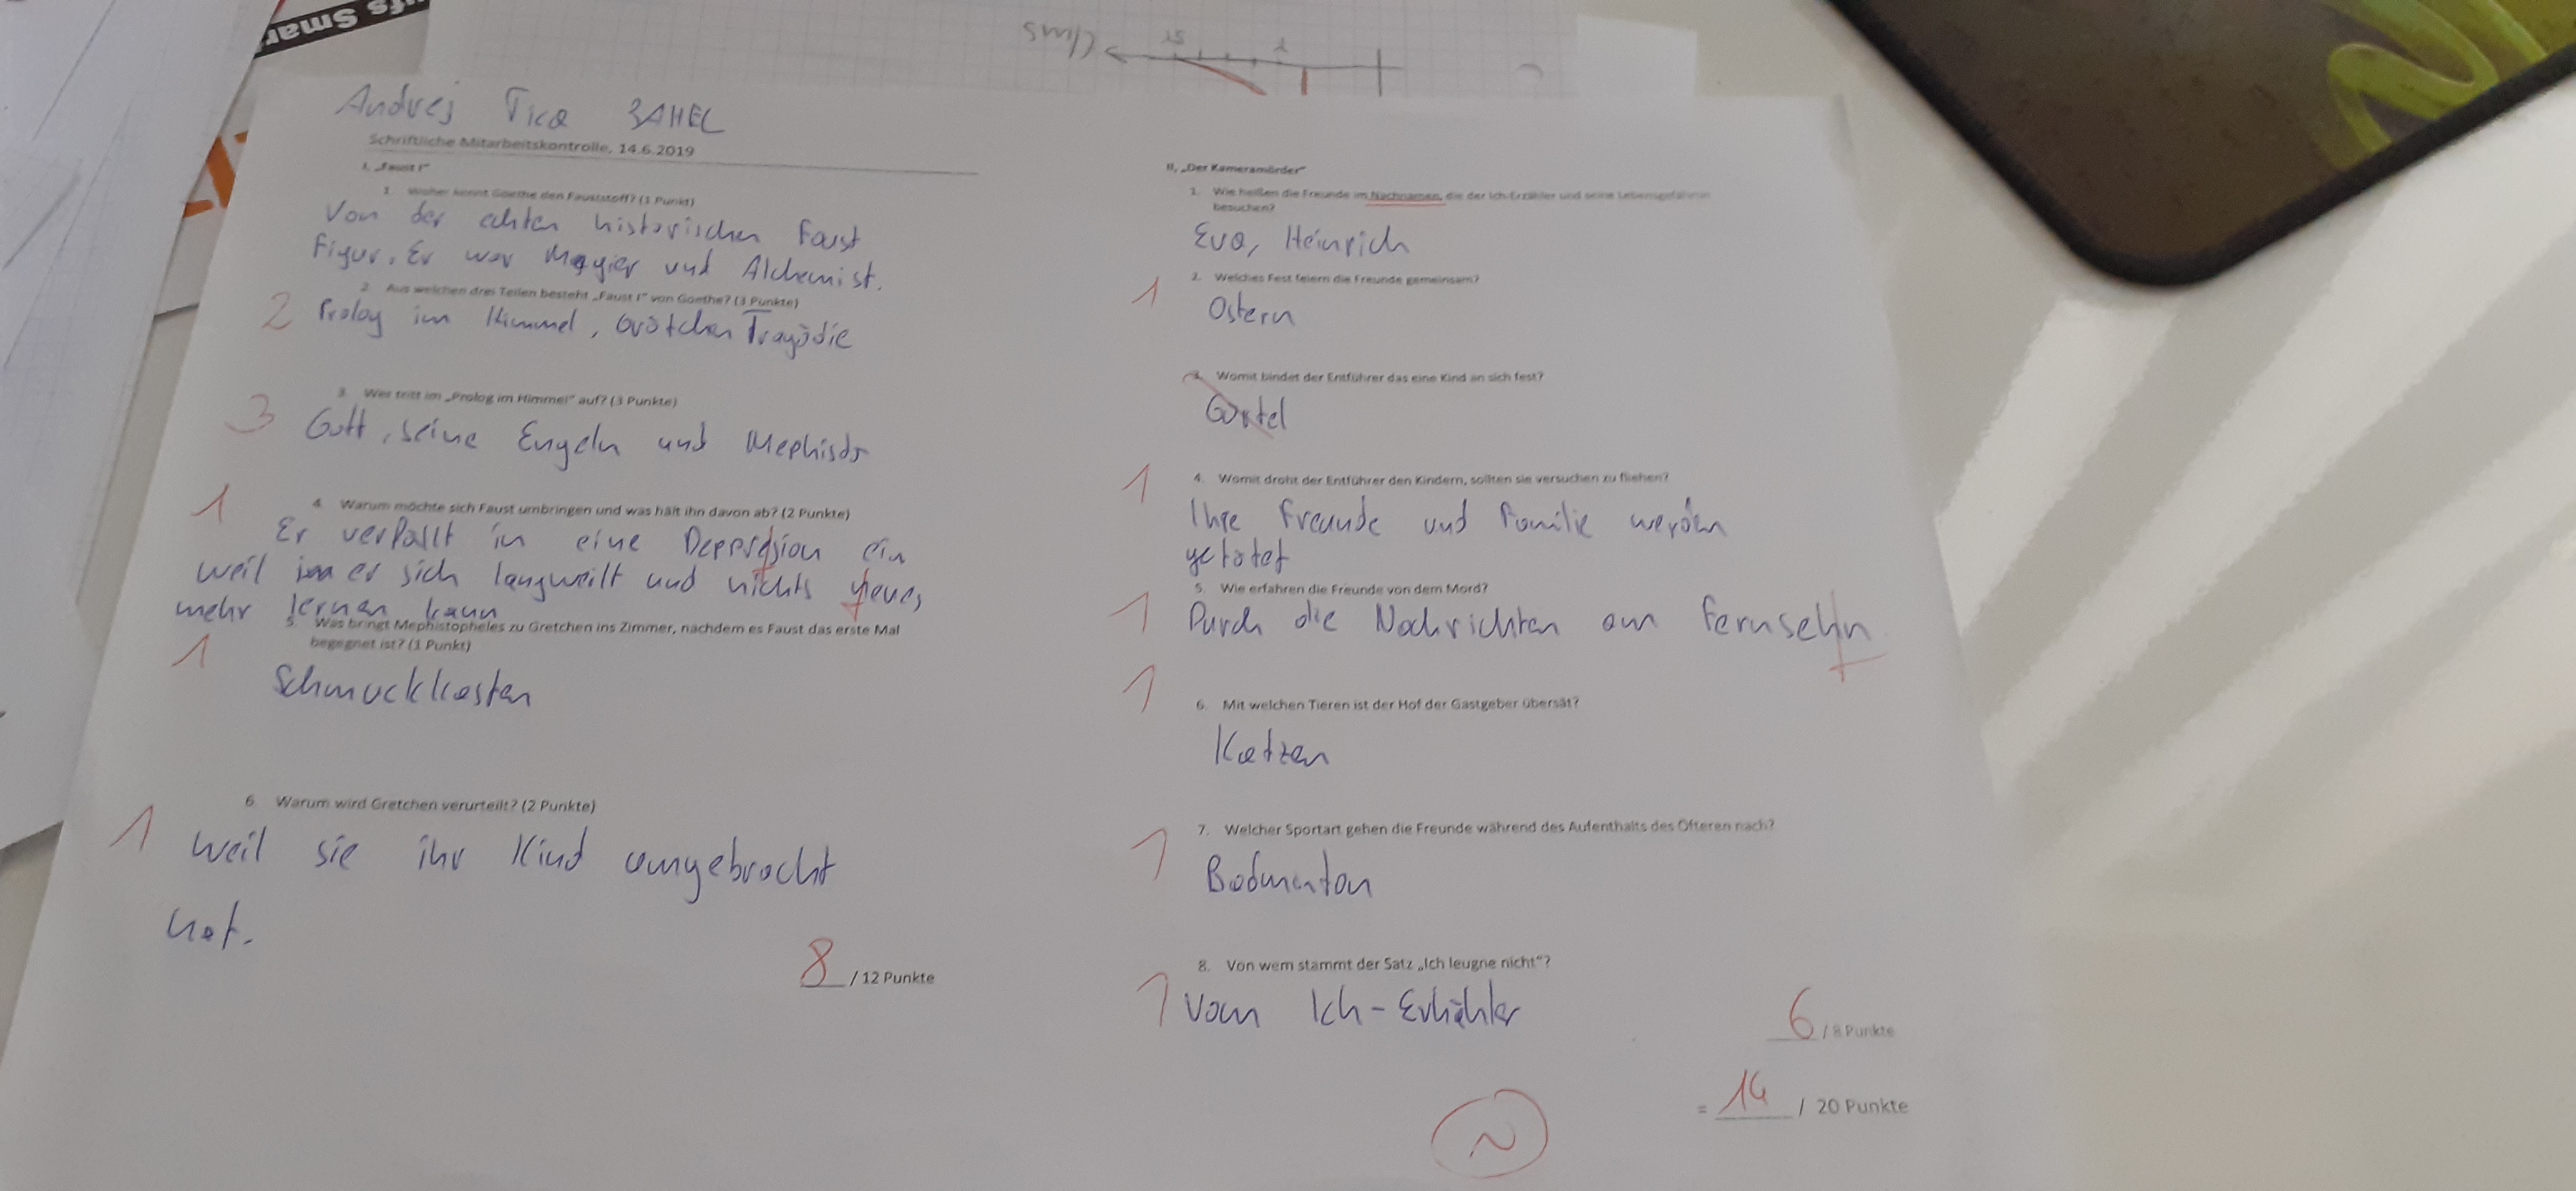 ufs Smar
t/ms
Andrej Tica 3AHEL
Schriftliche Mitarbeitskontrolle, 14.6.2019
I, „Faust I“
1. Woher kennt Goethe den Fauststoff? (1 Punkt)
Von der echten historischen Faust
Figur. Er war Magier und Alchemist.
2. Aus welchen drei Teilen besteht „Faust I“ von Goethe? (3 Punkte)
2 Prolog im Himmel, Grötchen Tragödie
3. Wer tritt im „Prolog im Himmel“ auf? (3 Punkte)
3 Gott, seine Engeln und Mephisto
1
4. Warum möchte sich Faust umbringen und was hält ihn davon ab? (2 Punkte)
Er verfällt in eine Depression ein
weil er sich langweilt und nichts neues
mehr lernen kann
5. Was bringt Mephistopheles zu Gretchen ins Zimmer, nachdem es Faust das erste Mal
begegnet ist? (1 Punkt)
1
Schmuckkasten
6. Warum wird Gretchen verurteilt? (2 Punkte)
1 Weil sie ihr Kind umgebracht
hat.
8 / 12 Punkte
II, „Der Kameramörder“
1. Wie heißen die Freunde im Nachnamen, die der Ich-Erzähler und seine Lebensgefährtin
besuchen?
Eva, Heinrich
2. Welches Fest feiern die Freunde gemeinsam?
1 Ostern
3. Womit bindet der Entführer das eine Kind an sich fest?
Gürtel
4. Womit droht der Entführer den Kindern, sollten sie versuchen zu fliehen?
1
Ihre Freunde und Familie werden
getötet
5. Wie erfahren die Freunde von dem Mord?
1 Durch die Nachrichten am Fernsehn
1
6. Mit welchen Tieren ist der Hof der Gastgeber übersät?
Katzen
7. Welcher Sportart gehen die Freunde während des Aufenthalts des Öfteren nach?
1 Badminton
8. Von wem stammt der Satz „Ich leugne nicht“?
1 Vom Ich-Erzähler
6 / 8 Punkte
= 14 / 20 Punkte